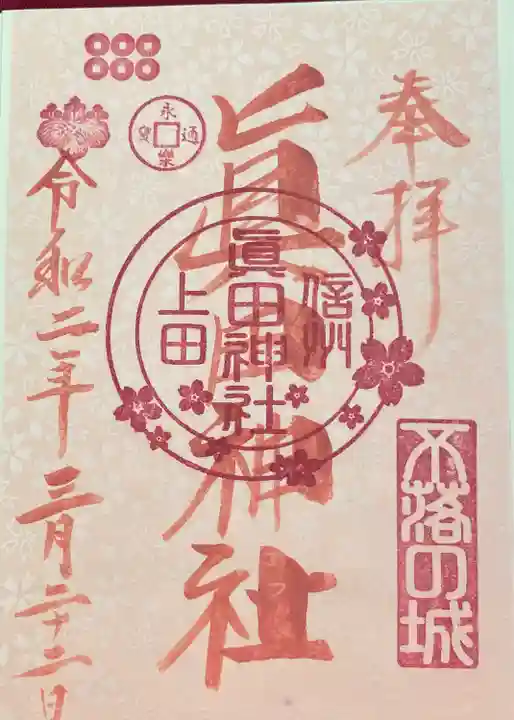 奉拝
不落の城
眞田神社
信州
眞田神社
上田
永楽通寳
令和二年三月二十二日